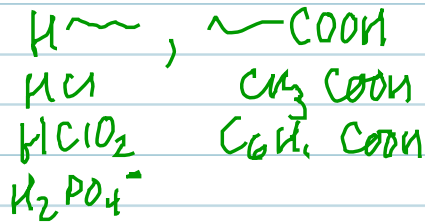 H~~~ , ~~~COOH
HCl CH3 COOH
HClO2 C6H5 COOH
H2PO4-